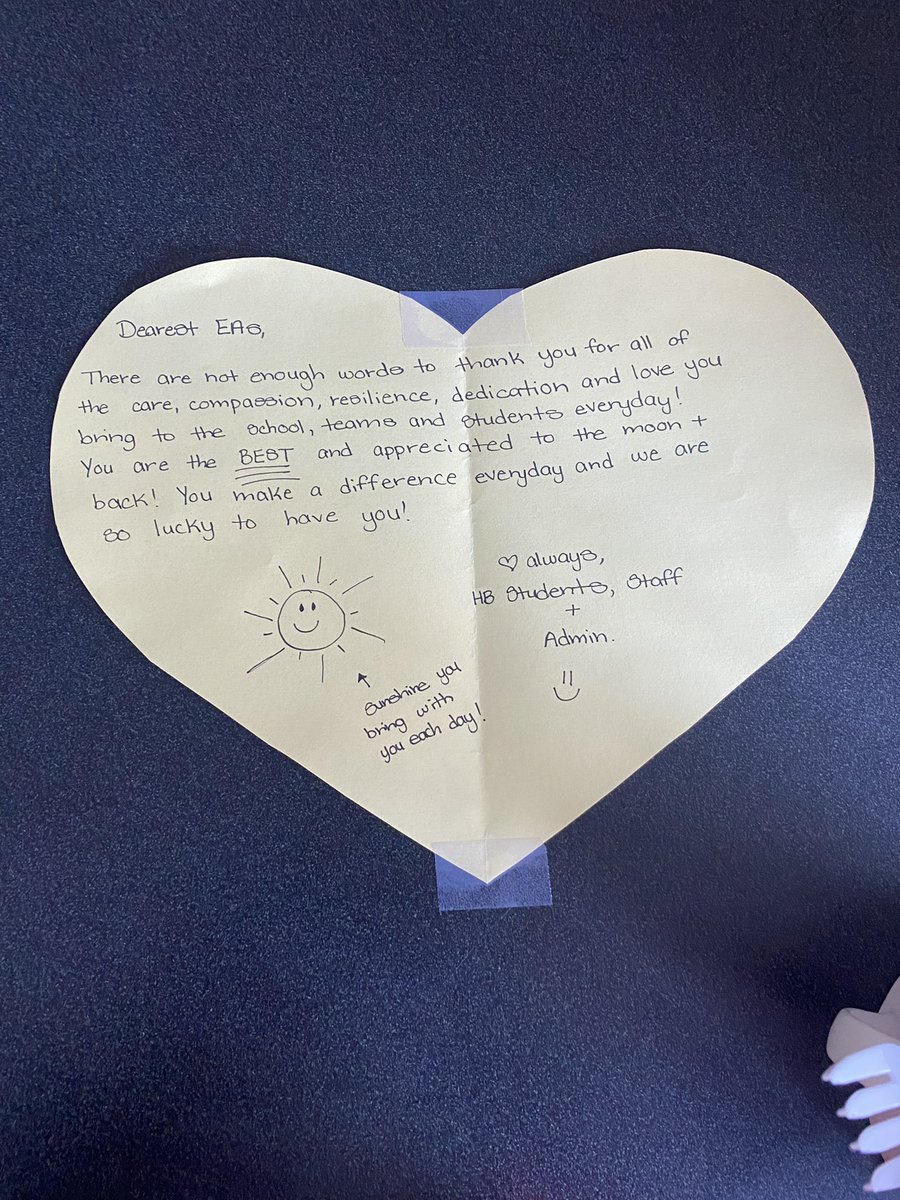 Dearest EAs,
There are not enough words to thank you for all of
the care, compassion, resilience, dedication and love you
bring to the school, teams and students everyday!
You are the BEST and appreciated to the moon +
back! You make a difference everyday and we are
so lucky to have you!
♡ always,
HB Students, Staff
+
Admin.
sunshine you
bring with
you each day!